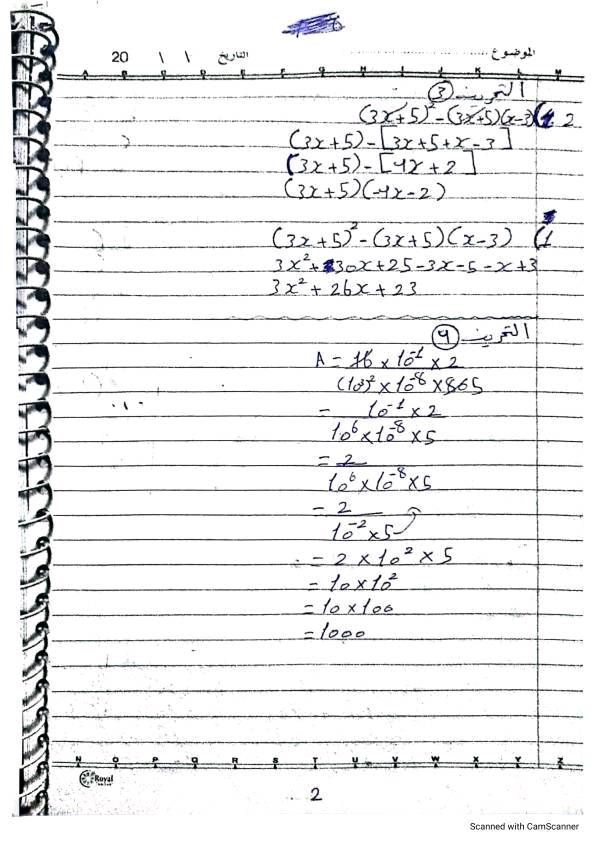 الموضوع ........................ التاريخ \ \ 20
A B C D E F G H I J K L M
التمرين ③
2 (3x+5)² - (3x+5)(x-3)
(3x+5) - [3x+5+x-3]
(3x+5) - [4x+2]
(3x+5)(-4x-2)
1) (3x+5)² - (3x+5)(x-3)
3x²+30x+25-3x-5-x+3
3x²+26x+23
التمرين ④
A = 16 × 10⁻¹ × 2
(10³)² × 10⁻⁸ × 805
= 10⁻¹ × 2
10⁶ × 10⁻⁸ × 5
= 2
10⁶ × 10⁻⁸ × 5
= 2
10⁻² × 5
= 2 × 10² × 5
= 10 × 10²
= 10 × 100
= 1000
N O P Q R S T U V W X Y Z
Royal
2
Scanned with CamScanner